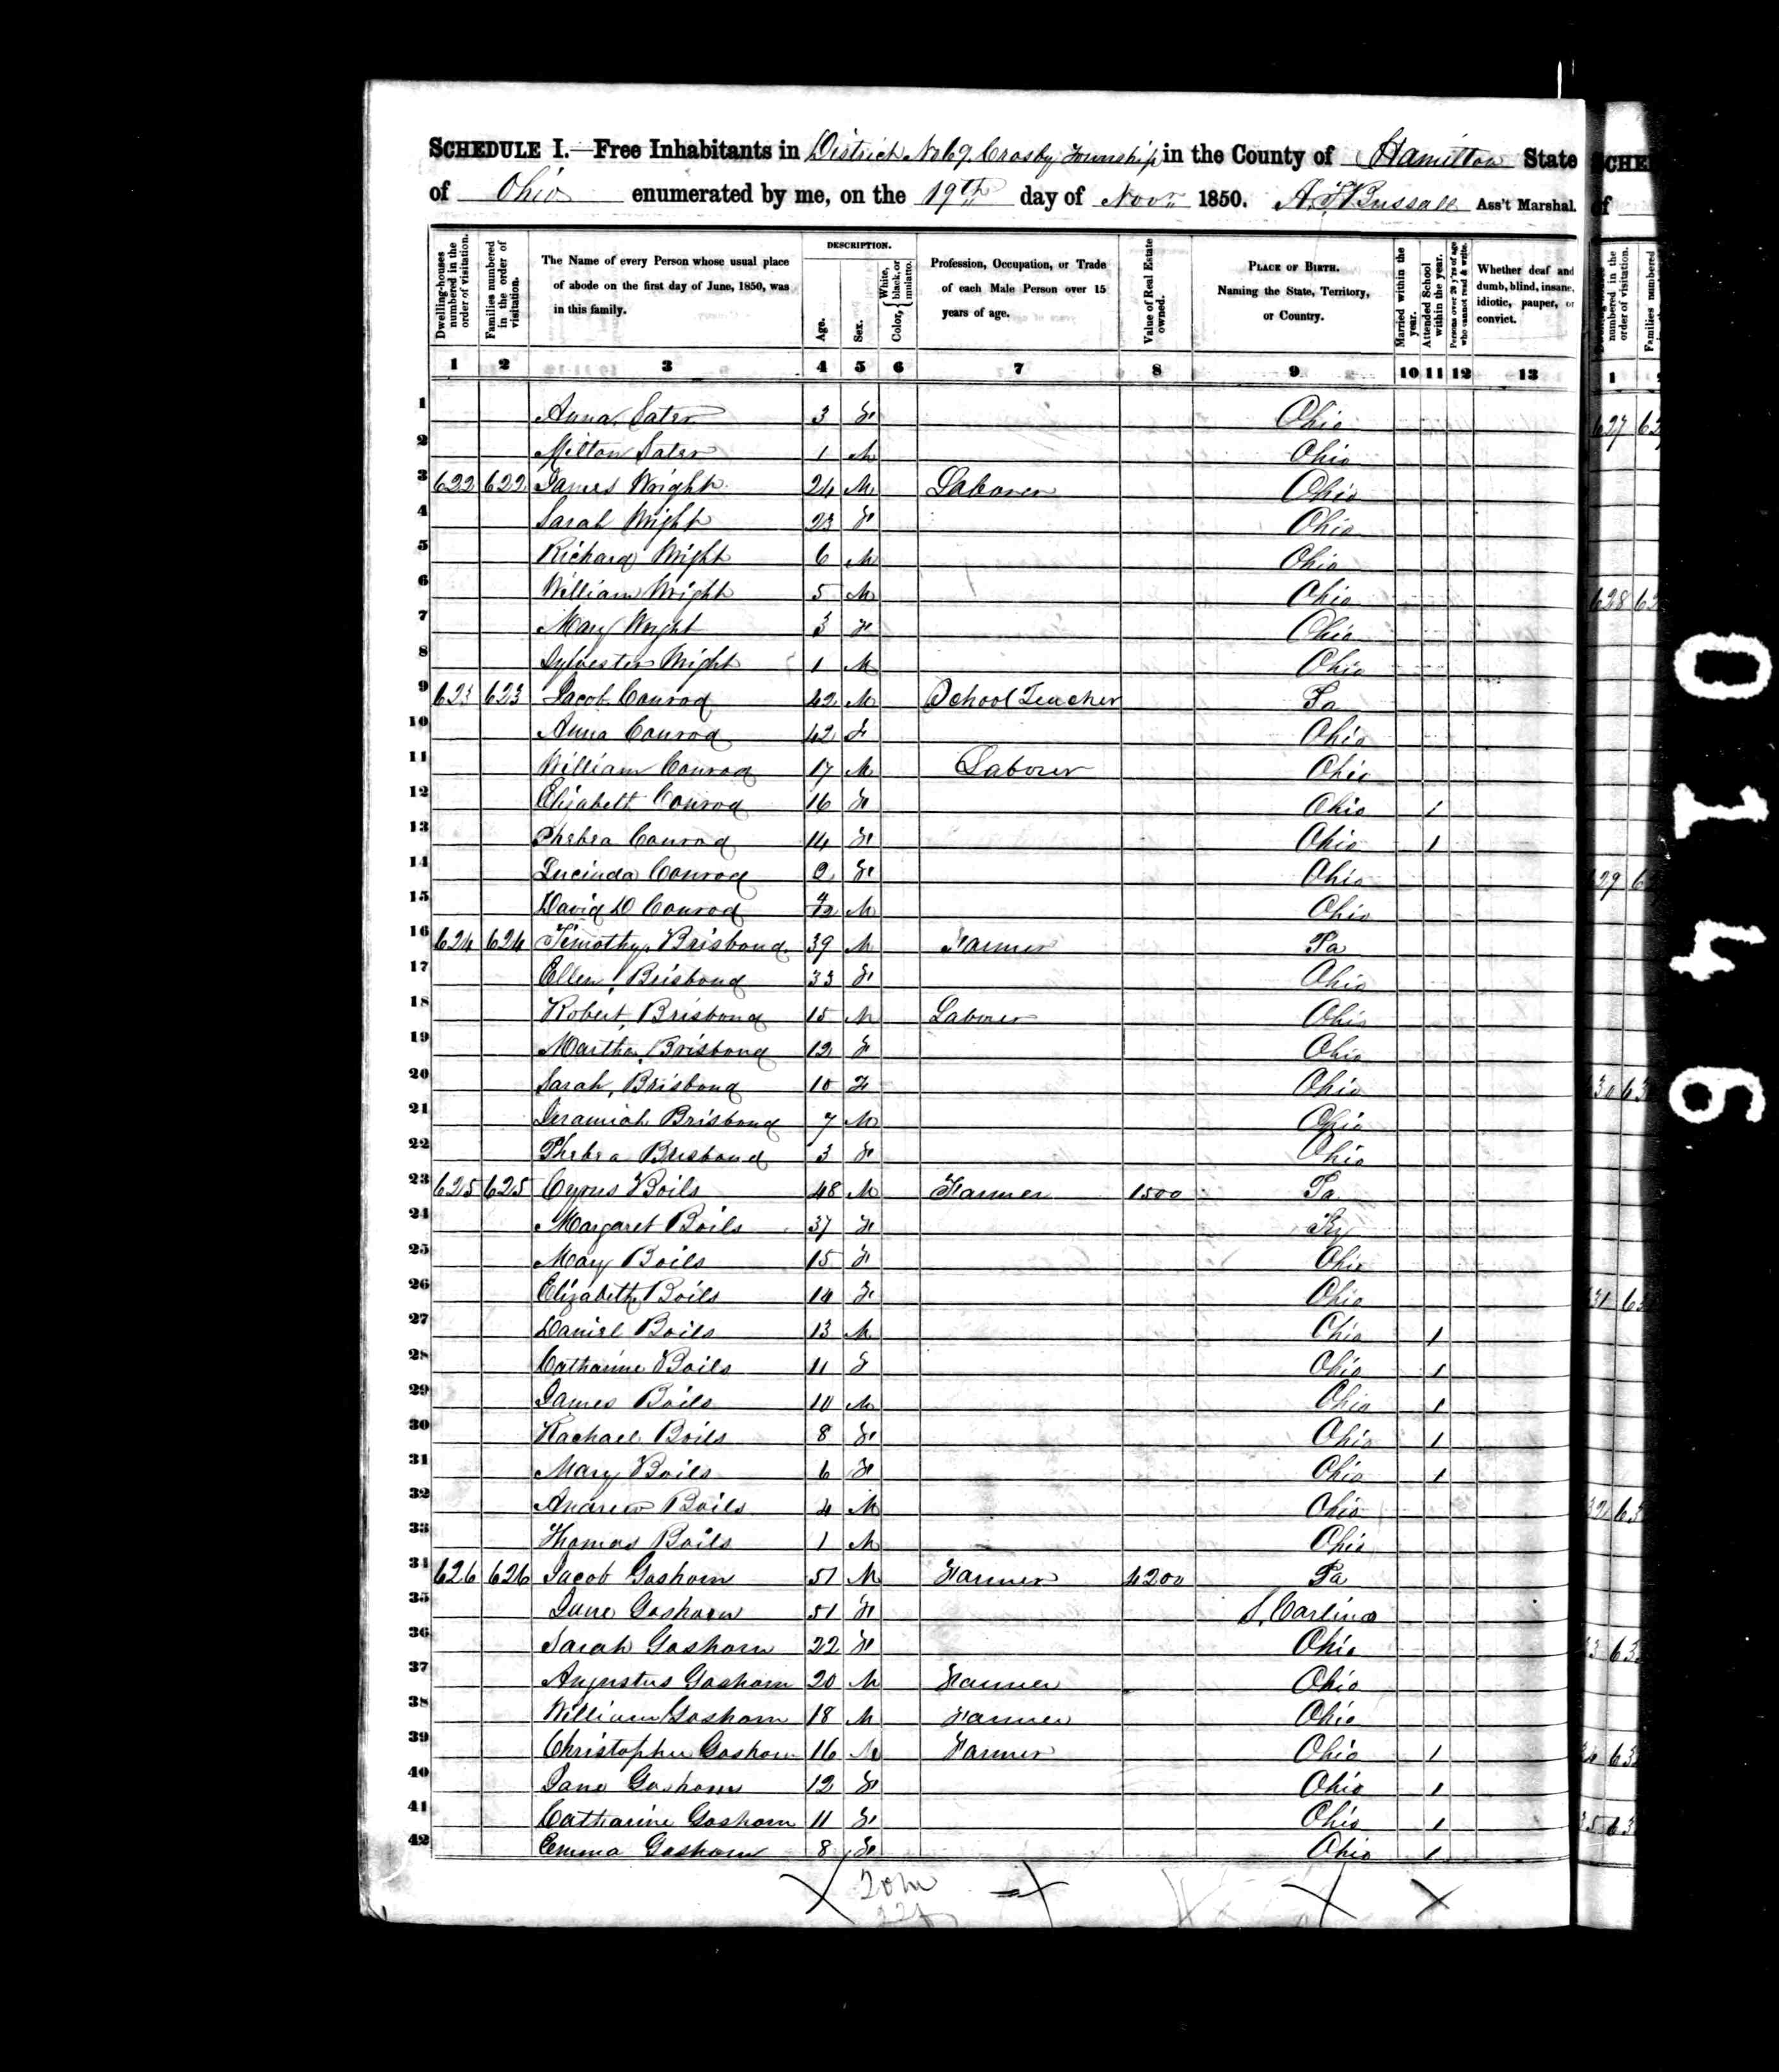 SCHEDULE I.—Free Inhabitants in District No 69 Crosby Township in the County of Hamilton State
of Ohio enumerated by me, on the 19th day of Novr. 1850. A. F. Bussall Ass't Marshal.
Dwelling-houses numbered in the order of visitation.
Families numbered in the order of visitation.
The Name of every Person whose usual place of abode on the first day of June, 1850, was in this family.
DESCRIPTION.
Age.
Sex.
Color, White, black, or mulatto.
Profession, Occupation, or Trade of each Male Person over 15 years of age.
Value of Real Estate owned.
PLACE OF BIRTH. Naming the State, Territory, or Country.
Married within the year.
Attended School within the year.
Persons over 20 y'rs of age who cannot read & write.
Whether deaf and dumb, blind, insane, idiotic, pauper, or convict.
1 2 3 4 5 6 7 8 9 10 11 12 13
1 Anna Sater 3 F Ohio
2 Milton Sater 1 M Ohio
3 622 622 James Wright 24 M Laborer Ohio
4 Sarah Wright 23 F Ohio
5 Richard Wright 6 M Ohio
6 William Wright 5 M Ohio
7 Mary Wright 3 F Ohio
8 Sylvester Wright 1 M Ohio
9 623 623 Jacob Conrod 42 M School Teacher Pa
10 Anna Conrod 42 F Ohio
11 William Conrod 17 M Labourer Ohio
12 Elisabett Conrod 16 F Ohio 1
13 Phebea Conrod 14 F Ohio 1
14 Lucinda Conrod 9 F Ohio
15 David D Conrod M Ohio
16 624 624 Timothy Brisbond 39 M Farmer Pa
17 Ellen Brisbond 33 F Ohio
18 Robert Brisbond 15 M Labourer Ohio
19 Martha Brisbond 12 F Ohio
20 Sarah Brisbond 10 F Ohio
21 Jeramiah Brisbond 7 M Ohio
22 Phebea Brisbond 3 F Ohio
23 625 625 Cyrus Boils 48 M Farmer 1500 Pa
24 Margaret Boils 37 F Ky
25 Mary Boils 15 F Ohio
26 Elizabeth Boils 14 F Ohio
27 Daniel Boils 13 M Ohio 1
28 Catharine Boils 11 F Ohio 1
29 James Boils 10 M Ohio 1
30 Rachael Boils 8 F Ohio 1
31 Mary Boils 6 F Ohio 1
32 Andrew Boils 4 M Ohio
33 Thomas Boils 1 M Ohio
34 626 626 Jacob Goshorn 51 M Farmer 4200 Pa
35 Jane Goshorn 51 F S. Carlina
36 Sarah Goshorn 22 F Ohio
37 Augustus Goshorn 20 M Farmer Ohio
38 William Goshorn 18 M Farmer Ohio
39 Christopher Goshorn 16 M Farmer Ohio 1
40 Jane Goshorn 12 F Ohio 1
41 Catharine Goshorn 11 F Ohio 1
42 Emma Goshorn 8 F Ohio 1
20 m
22 f
0146
SCHE
of
numbered in the order of visitation.
Families numbered
1
627
628